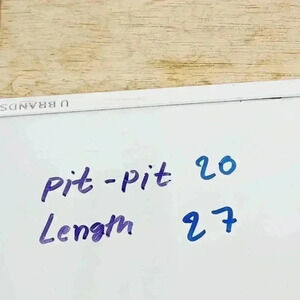 U BRANDS
pit-pit 20
Length 27